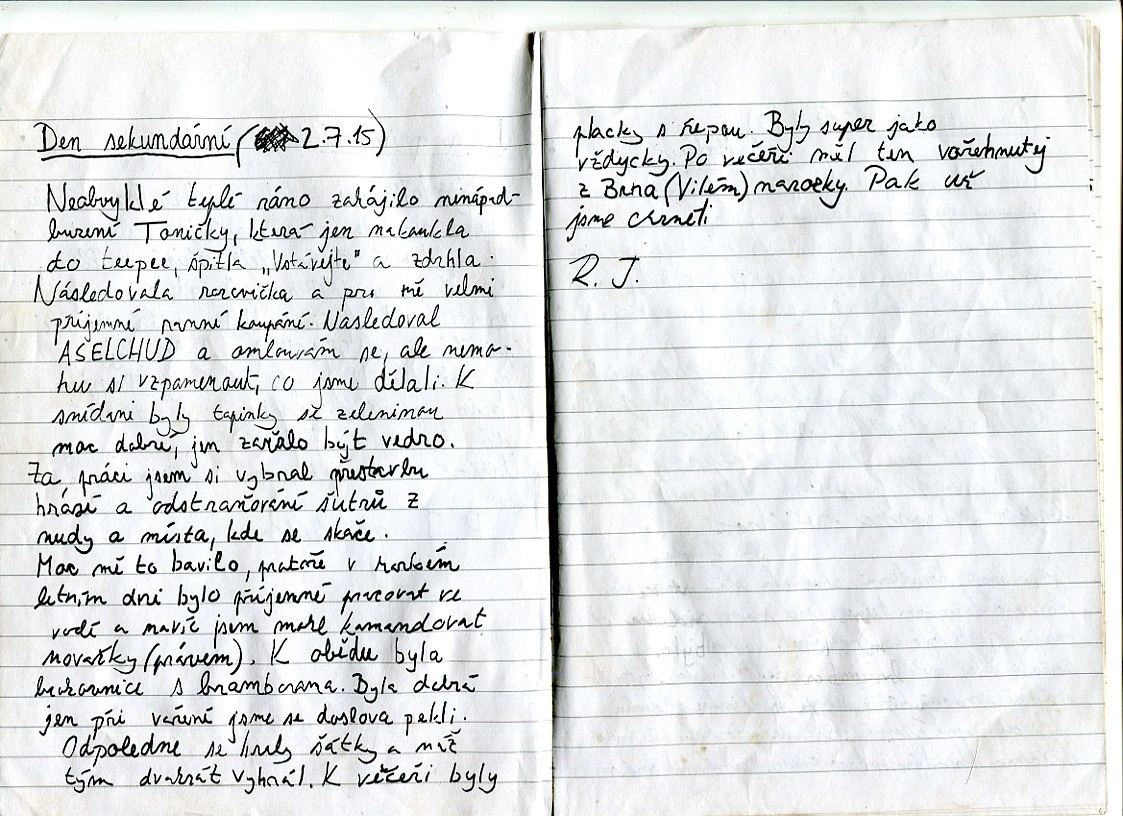 Den sekundární (2.7.15)
Neobvyklé teplé ráno zahájilo nenápad-
buzení Toničky, která jen nakoukla
do teepee, špitla „Vstávejte" a zdrhla.
Následovala rozcvička a pro mě velmi
příjemné ranní koupání. Následoval
ASELCHUD a omlouvám se, ale nemo-
hu si vzpomenout, co jsme dělali. K
snídani byly topinky se zeleninou
moc dobré, jen začalo být vedro.
Za práci jsem si vybral přestavbu
hrází a odstraňování šutrů z
nudy a místa, kde se skáče.
Moc mě to bavilo, protože v horkém
letním dni bylo příjemné pracovat ve
vodě a navíc jsem mohl komandovat
nováčky (právem). K obědu byla
s bramborama. Byla dobrá
jen při vaření jsme se doslova pekli.
Odpoledne se hrály šátky a náš
tým dvakrát vyhrál. K večeři byly
placky s řepou. Byly super jako
vždycky. Po večeři měl ten vořehnutý
z Brna (Vilém) narozky. Pak už
jsme chrněli
R. J.